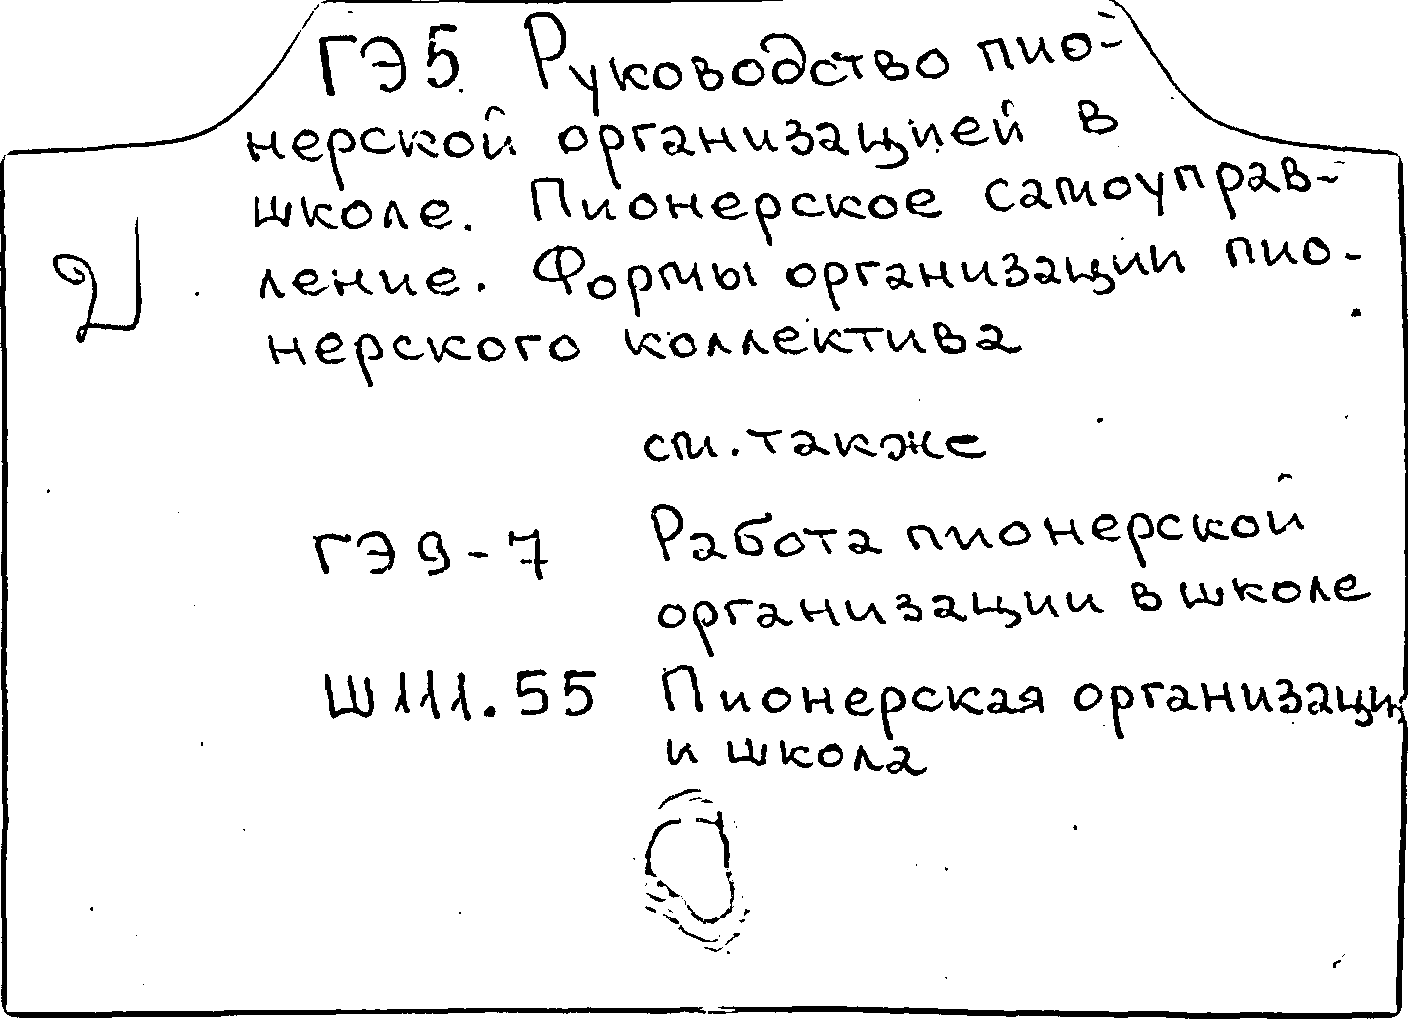 ГЭ5 Руководство пио-
нерской организацией в
школе. Пионерское самоуправ-
ление. Формы организации пио-
нерского коллектива
см. также
ГЭ9-7 Работа пионерской
организации в школе
Ш111.55 Пионерская организаци
и школа